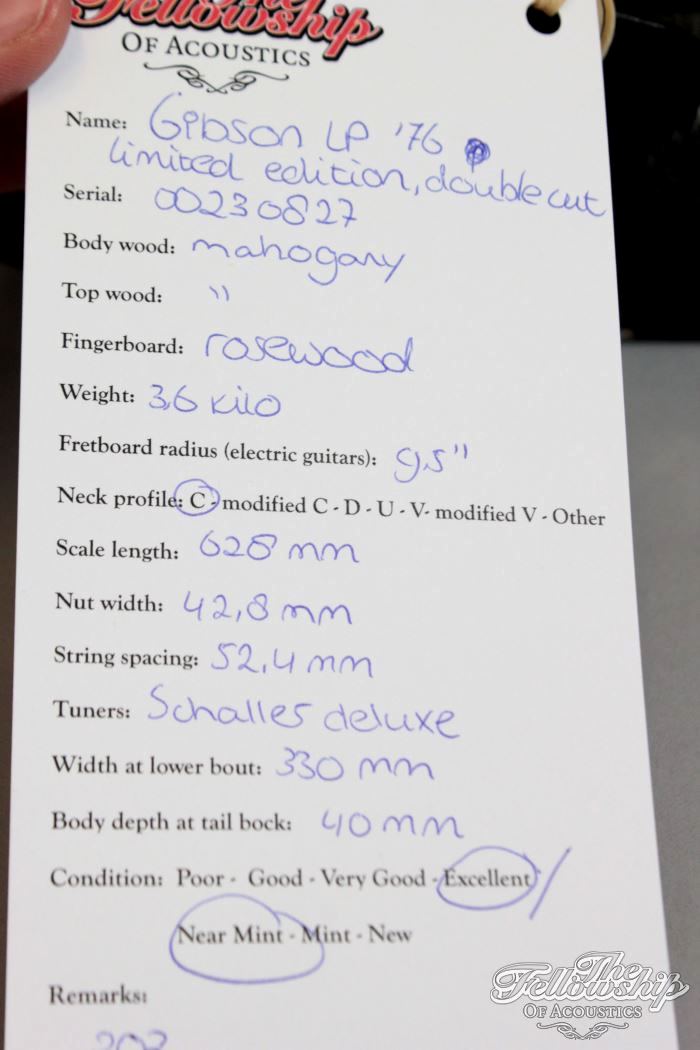 The
Fellowship
OF ACOUSTICS
Name: Gibson LP '76
limited edition, double cut
Serial: 00230827
Body wood: mahogany
Top wood: "
Fingerboard: rosewood
Weight: 3,6 kilo
Fretboard radius (electric guitars): 9,5"
Neck profile: C - modified C - D - U - V- modified V - Other
Scale length: 628 mm
Nut width: 42,8 mm
String spacing: 52,4 mm
Tuners: Schaller deluxe
Width at lower bout: 330 mm
Body depth at tail bock: 40 mm
Condition: Poor - Good - Very Good - Excellent /
Near Mint - Mint - New
Remarks:
The
Fellowship
OF ACOUSTICS